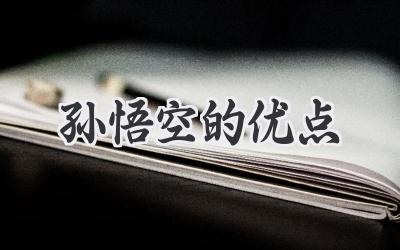 孙悟空的优点